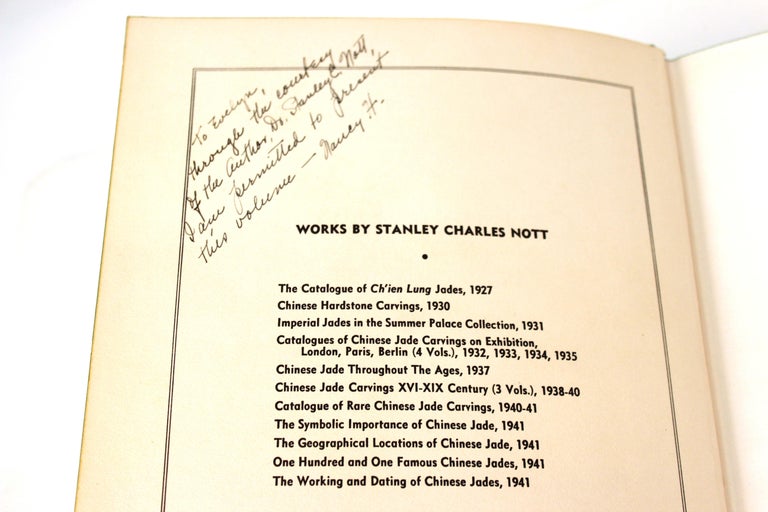 To Evelyn,
through the courtesy
of the Author, Dr. Stanley C. Nott,
I am permitted to present
this volume — Nancy H.
WORKS BY STANLEY CHARLES NOTT
•
The Catalogue of Ch'ien Lung Jades, 1927
Chinese Hardstone Carvings, 1930
Imperial Jades in the Summer Palace Collection, 1931
Catalogues of Chinese Jade Carvings on Exhibition,
London, Paris, Berlin (4 Vols.), 1932, 1933, 1934, 1935
Chinese Jade Throughout The Ages, 1937
Chinese Jade Carvings XVI-XIX Century (3 Vols.), 1938-40
Catalogue of Rare Chinese Jade Carvings, 1940-41
The Symbolic Importance of Chinese Jade, 1941
The Geographical Locations of Chinese Jade, 1941
One Hundred and One Famous Chinese Jades, 1941
The Working and Dating of Chinese Jades, 1941